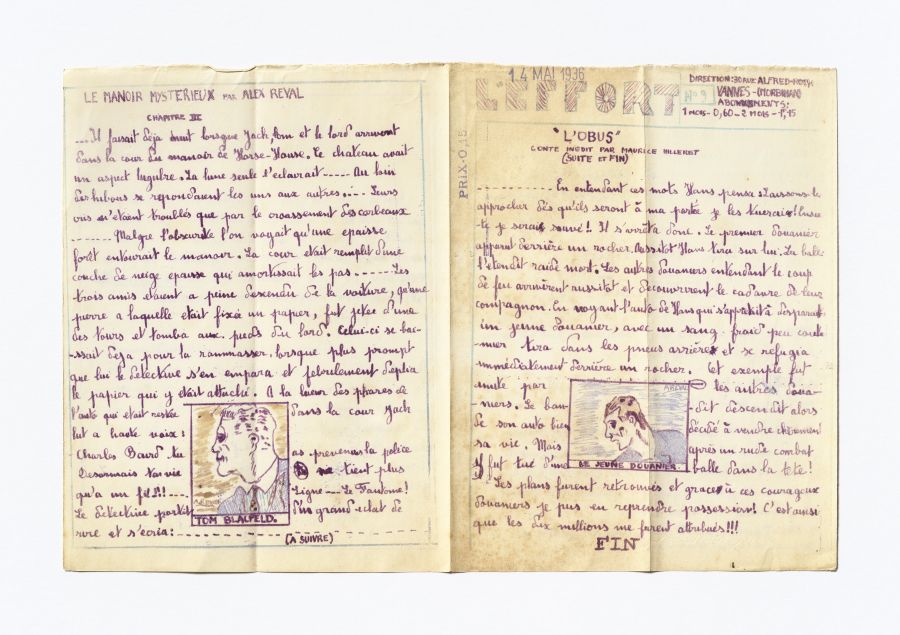 LE MANOIR MYSTERIEUX PAR ALEX REVAL
CHAPITRE III
...Il faisait deja nuit lorsque Jack, Tom et le lord arrivent
dans la cour du manoir de Horse-House. Le chateau avait
un aspect lugubre. La lune seule l'eclairait ----- Au loin
des hiboux se repondaient les uns aux autres..... Leurs
cris n'étaient troublés que par le croassement des corbeaux
------ Malgré l'obscurité l'on voyait qu'une epaisse
forêt entourait le manoir. La cour était remplit d'une
couche de neige epaisse qui amortissait les pas ----- Les
trois amis etaient a peine descendu de la voiture, qu'une
pierre a laquelle etait fixée un papier, fut jetée d'une
des tours et tomba aux pieds du lord. Celui-ci se bais-
-ssait deja pour la rammasser, lorsque plus prompt
que lui le detective s'en empara et febrilement deplia
le papier qui y était attaché. A la lueur des phares de
l'auto qui était restée dans la cour Jack
lut a haute voix:
Charles Baird tu as prevenu la police
Desormais ta vie ne tient plus
qu'a un fil!!! --- Signé --- Le Fantome!
Le detective partit d'un grand eclat de
rire et s'ecria: ------
TOM BLALFELD.
(A SUIVRE)
14 MAI 1936
L'EFFORT
N° 9
DIRECTION: 30 AVE ALFRED-ROTH
VANNES-(MORBIHAN)
ABONNEMENTS:
1 MOIS-0,60-2 MOIS-1,15
PRIX-0,15
"L'OBUS"
CONTE INEDIT PAR MAURICE HILLERET
(SUITE ET FIN)
.......... En entendant ces mots Hans pensa: Laissons-le
approcher dés qu'ils seront à ma portée je les tuerais! Ensui-
-te je serais sauvé! Il s'arrêta donc. Le premier douanier
apparut derrière un rocher. Aussitot Hans tira sur lui. La balle
l'étendit raide mort. Les autres douaniers entendant le coup
de feu arrivèrent aussitôt et decouvrirent le cadavre de leur
compagnon. En voyant l'auto de Hans qui s'apprêtait à disparait
un jeune douanier, avec un sang-froid peu coutu-
-mier tira dans les pneus arrières et se refugia
immédiatement derrière un rocher. Cet exemple fut
imité par les autres doua-
-niers. Le ban- -dit descendit alors
de son auto bien décidé à vendre chèrement
sa vie. Mais après un rude combat
il fut tué d'une balle dans la tête!
ABEVAL
LE JEUNE DOUANIER.
Les plans furent retrouvés et grace à ces courageux
douaniers je pus en reprendre possession! C'est ainsi
que les dix millions me furent attribués!!!
FIN